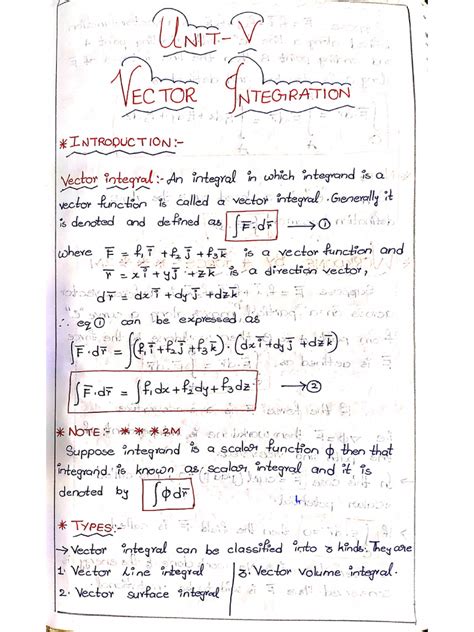 UNIT-V
VECTOR INTEGRATION
* INTRODUCTION:-
Vector integral:- An integral in which integrand is a
vector function is called a vector integral. Generally it
is denoted and defined as ∫F̅·dr̅ → ①
where F̅ = f₁i̅ + f₂j̅ + f₃k̅ is a vector function and
r̅ = xi̅ + yj̅ + zk̅ is a direction vector,
dr̅ = dxi̅ + dyj̅ + dzk̅
∴ eq① can be expressed as
∫F̅·dr̅ = ∫(f₁i̅ + f₂j̅ + f₃k̅)·(dxi̅ + dyj̅ + dzk̅)
∫F̅·dr̅ = ∫f₁dx + f₂dy + f₃dz → ②
* NOTE:- * * * 2M
Suppose integrand is a scalar function ϕ then that
integrand is known as scalar integral and it is
denoted by ∫ϕdr̅
* TYPES:-
→ Vector integral can be classified into 3 kinds. They are
1. Vector Line integral
2. Vector surface integral
3. Vector volume integral.